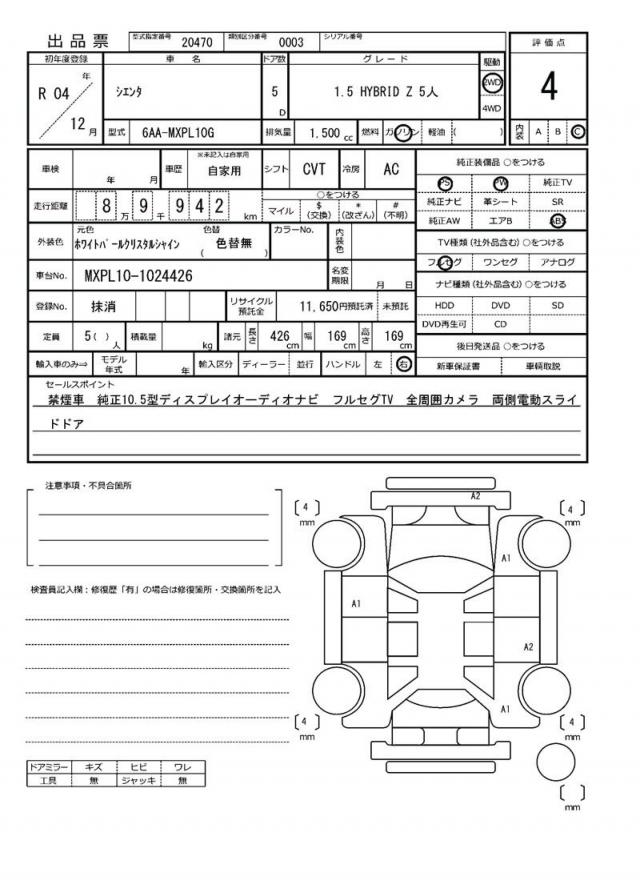 出品票 型式指定番号 20470 類別区分番号 0003 シリアル番号
評価点
初年度登録 車名 ドア数 グレード 駆動
R 04 年 12 月 シエンタ 5 D 1.5 HYBRID Z 5人 2WD 4WD
4
型式 6AA-MXPL10G 排気量 1,500 cc 燃料 ガソリン 軽油 ( ) 内装 A B C
車検 年 月 車歴 ※未記入は自家用 自家用 シフト CVT 冷房 AC
走行距離 8 万 9 千 9 4 2 km ○をつける マイル $ (交換) * (改ざん) # (不明)
外装色 元色 ホワイトパールクリスタルシャイン 色替 ( 色替無 ) カラーNo. 内装色
車台No. MXPL10-1024426 名変期限 月 日
登録No. 抹消 リサイクル預託金 11,650円預託済 未預託
定員 5( ) 人 積載量 kg 諸元 長さ 426 cm 幅 169 cm 高さ 169 cm
輸入車のみ⇒ モデル年式 年 輸入区分 ディーラー 並行 ハンドル 左 右
純正装備品 ○をつける
PS PW 純正TV
純正ナビ 革シート SR
純正AW エアB ABS
TV種類 (社外品含む) ○をつける
フルセグ ワンセグ アナログ
ナビ種類 (社外品含む) ○をつける
HDD DVD SD
DVD再生可 CD
後日発送品 ○をつける
新車保証書 車輌取説
セールスポイント
禁煙車 純正10.5型ディスプレイオーディオナビ フルセグTV 全周囲カメラ 両側電動スライ
ドドア
注意事項・不具合箇所
検査員記入欄：修復歴「有」の場合は修復箇所・交換箇所を記入
ドアミラー キズ ヒビ ワレ
工具 無 ジャッキ 無
A2
[ 4 ] mm
[ 4 ] mm
A1
A1
A2
A1
[ 4 ] mm
[ 4 ] mm
[ ] mm